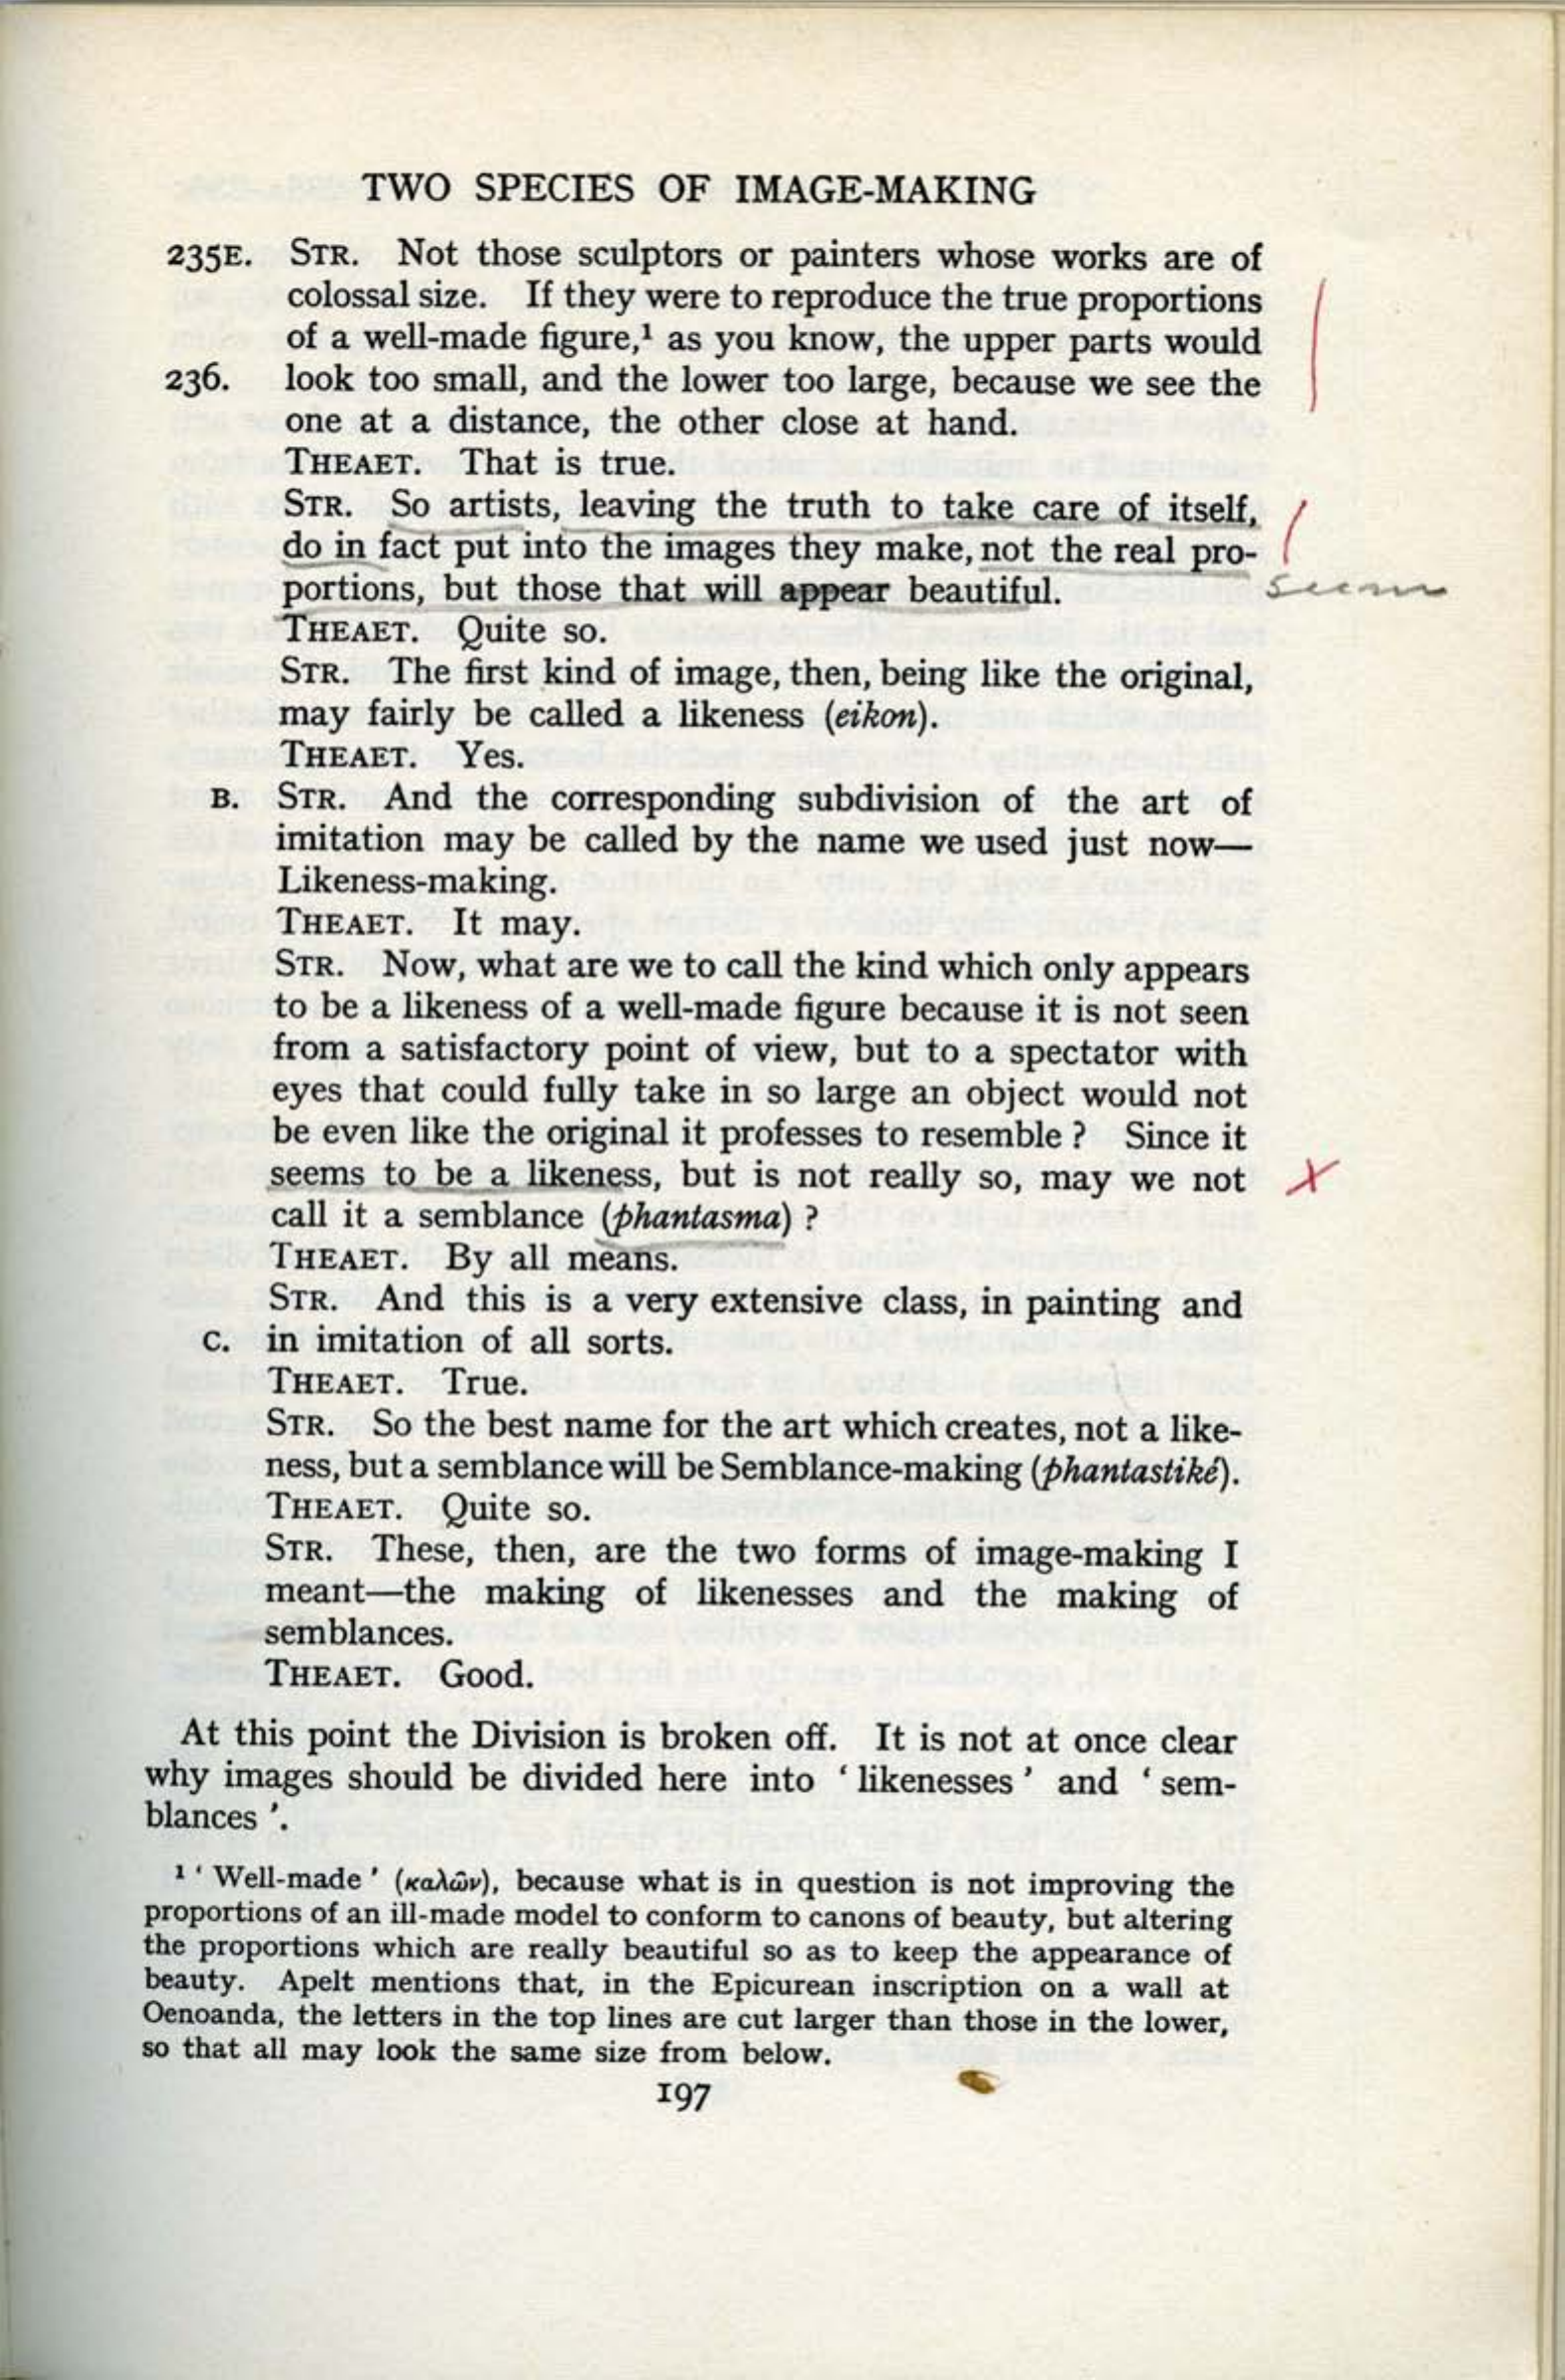 TWO SPECIES OF IMAGE-MAKING
235E. STR. Not those sculptors or painters whose works are of
colossal size. If they were to reproduce the true proportions
of a well-made figure,¹ as you know, the upper parts would
236. look too small, and the lower too large, because we see the
one at a distance, the other close at hand.
THEAET. That is true.
STR. So artists, leaving the truth to take care of itself,
do in fact put into the images they make, not the real pro-
portions, but those that will appear beautiful.
seem
THEAET. Quite so.
STR. The first kind of image, then, being like the original,
may fairly be called a likeness (eikon).
THEAET. Yes.
B. STR. And the corresponding subdivision of the art of
imitation may be called by the name we used just now—
Likeness-making.
THEAET. It may.
STR. Now, what are we to call the kind which only appears
to be a likeness of a well-made figure because it is not seen
from a satisfactory point of view, but to a spectator with
eyes that could fully take in so large an object would not
be even like the original it professes to resemble ? Since it
seems to be a likeness, but is not really so, may we not
call it a semblance (phantasma) ?
THEAET. By all means.
STR. And this is a very extensive class, in painting and
C. in imitation of all sorts.
THEAET. True.
STR. So the best name for the art which creates, not a like-
ness, but a semblance will be Semblance-making (phantastiké).
THEAET. Quite so.
STR. These, then, are the two forms of image-making I
meant—the making of likenesses and the making of
semblances.
THEAET. Good.
At this point the Division is broken off. It is not at once clear
why images should be divided here into ‘ likenesses ’ and ‘ sem-
blances ’.
¹ ‘ Well-made ’ (καλῶν), because what is in question is not improving the
proportions of an ill-made model to conform to canons of beauty, but altering
the proportions which are really beautiful so as to keep the appearance of
beauty. Apelt mentions that, in the Epicurean inscription on a wall at
Oenoanda, the letters in the top lines are cut larger than those in the lower,
so that all may look the same size from below.
197